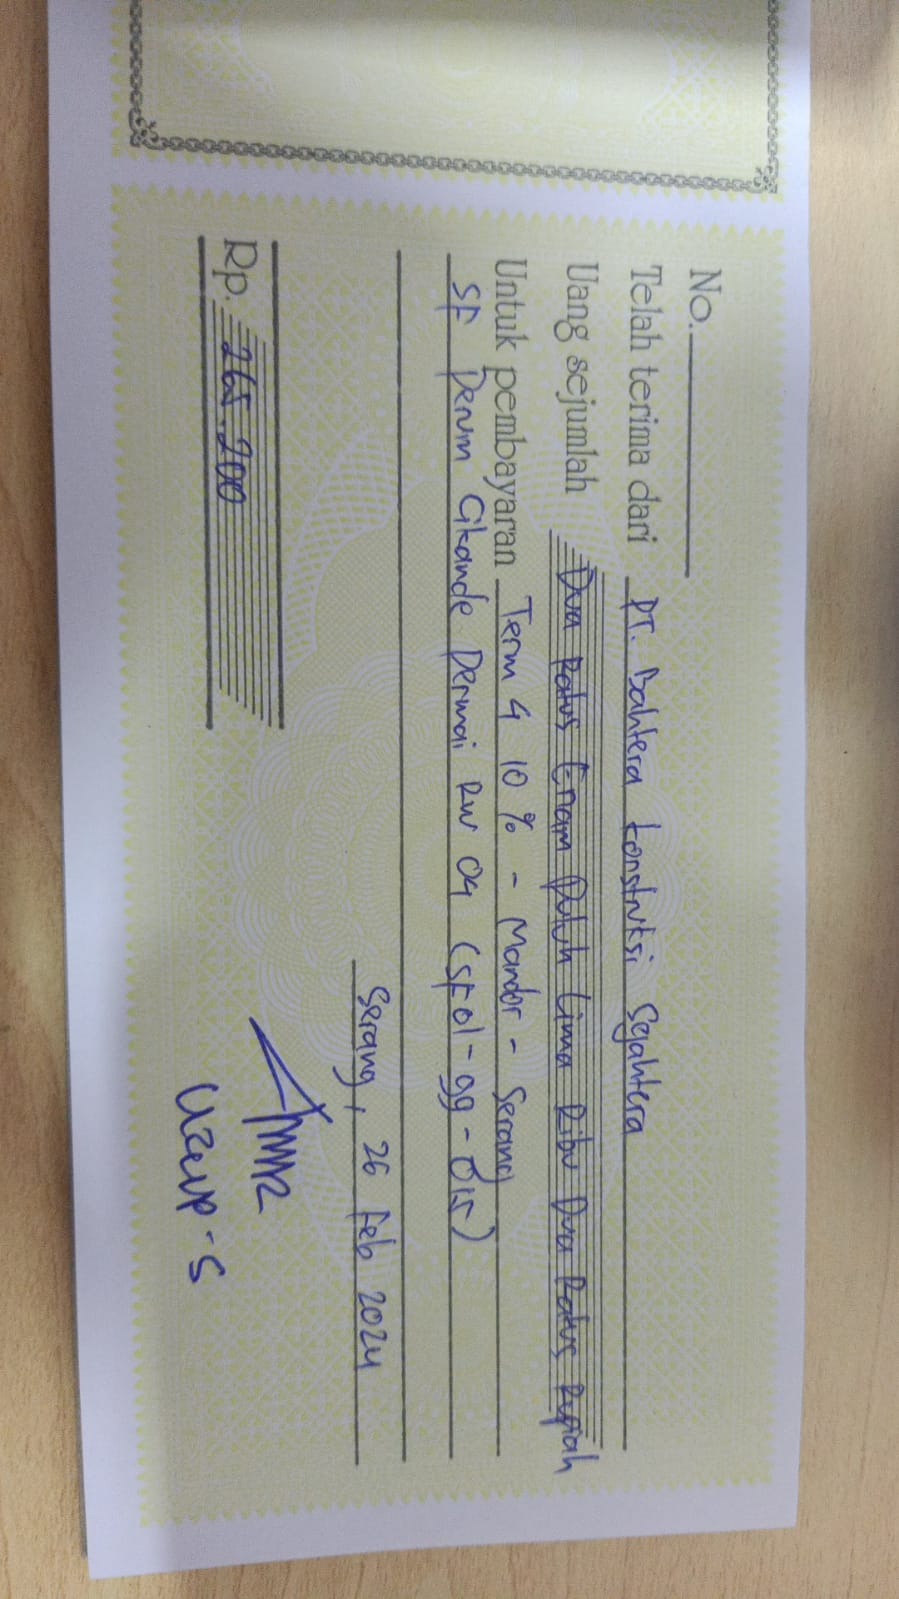 No.
Telah terima dari PT. Bahtera Konstruksi Sejahtera
Uang sejumlah Dua Ratus Enam Puluh Lima Ribu Dua Ratus Rupiah
Untuk pembayaran Term 4 10% - Mandor - Serang
SF Perum Cikande Permai RW 04 (SF01-99-015)
Serang, 26 Feb 2024
Rp. 265.200